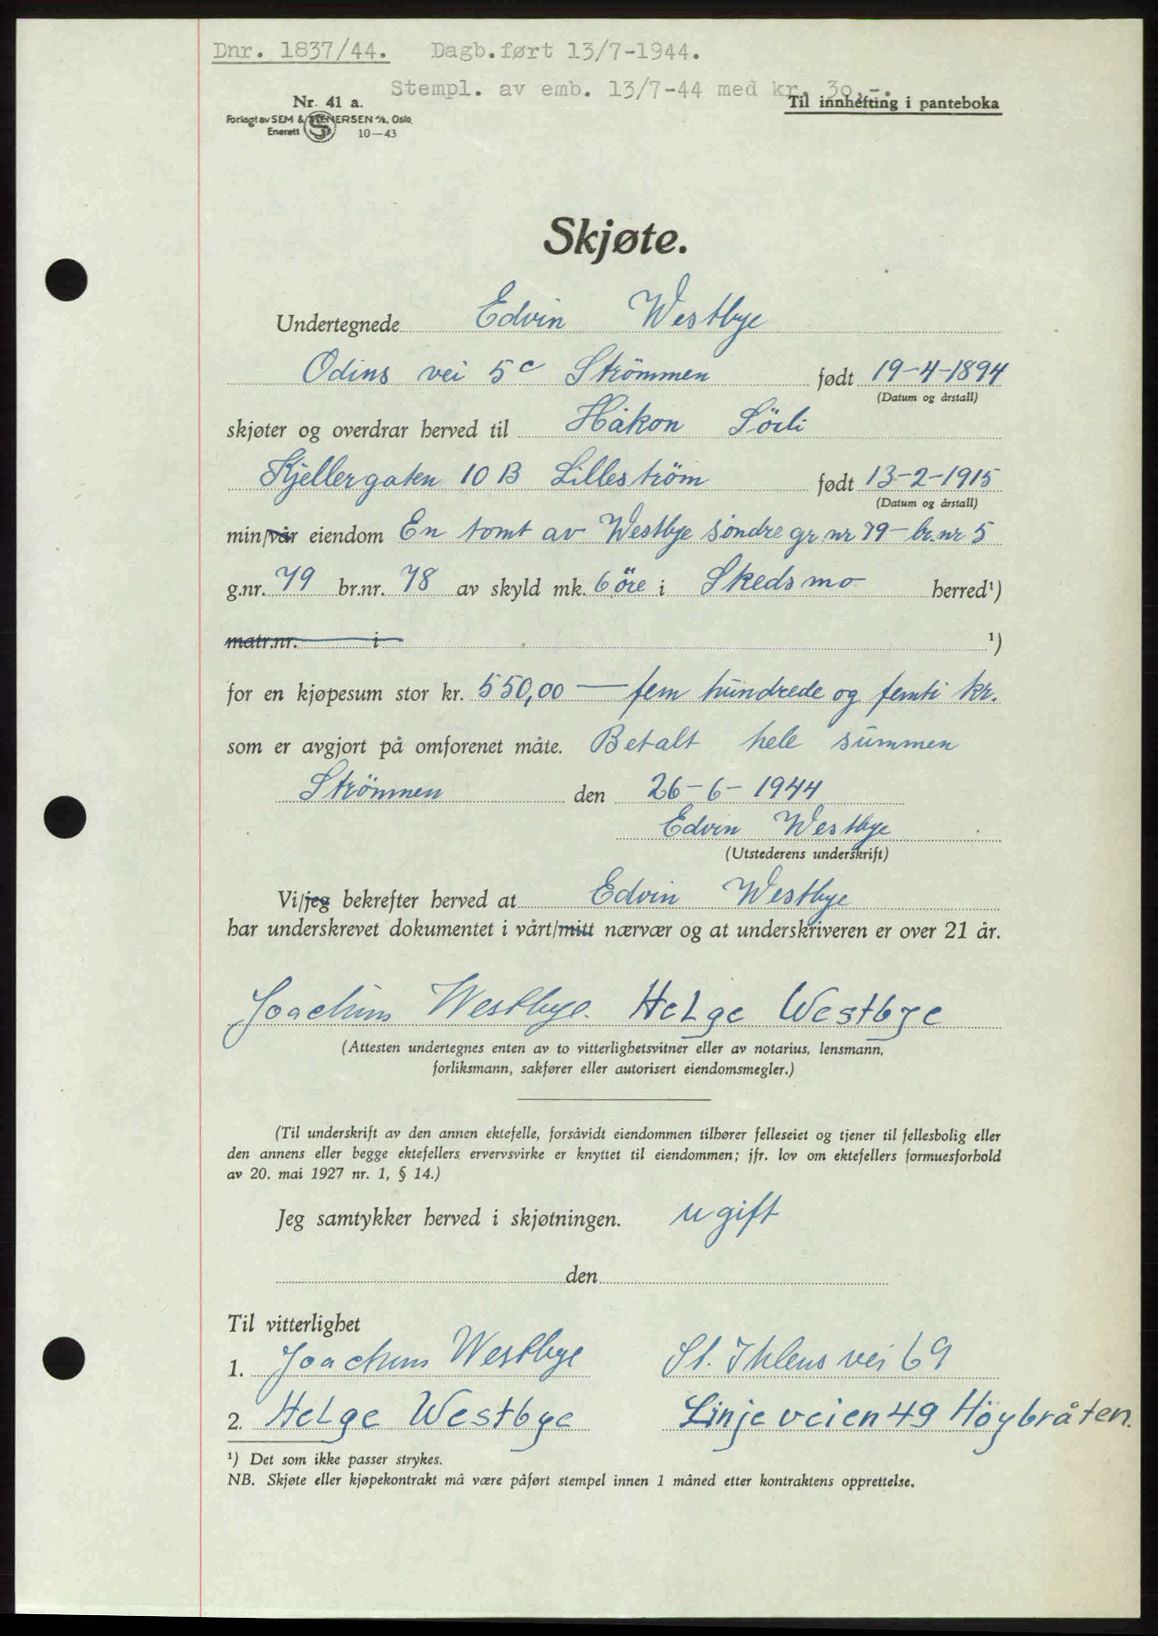 Dnr. 1837/44. Dagb.ført 13/7-1944.
Stempl. av emb. 13/7-44 med kr. 30,-.
Nr. 41 a. Til innhefting i panteboka
Forlagt av SEM & STENERSEN A/S, Oslo
Enerett S 10—43
Skjøte.
Undertegnede Edvin Westbye
Odins vei 5c Strömmen født 19-4-1894
(Datum og årstall)
skjøter og overdrar herved til Håkon Sörli
Kjellergaten 10 B Lilleström født 13-2-1915
(Datum og årstall)
min/vår eiendom En tomt av Westbye söndre gr nr 79 - br. nr 5
g.nr. 79 br.nr. 78 av skyld mk. 6 öre i Skedsmo herred¹)
matr.nr. i ¹)
for en kjøpesum stor kr. 550,00 — fem hundrede og femti kr.
som er avgjort på omforenet måte. Betalt hele summen
Strömmen den 26-6-1944
Edvin Westbye
(Utstederens underskrift)
Vi/jeg bekrefter herved at Edvin Westbye
har underskrevet dokumentet i vårt/mitt nærvær og at underskriveren er over 21 år.
Joachim Westbye. Helge Westbye
(Attesten undertegnes enten av to vitterlighetsvitner eller av notarius, lensmann,
forliksmann, sakfører eller autorisert eiendomsmegler.)
(Til underskrift av den annen ektefelle, forsåvidt eiendommen tilhører felleseiet og tjener til fellesbolig eller
den annens eller begge ektefellers ervervsvirke er knyttet til eiendommen; jfr. lov om ektefellers formuesforhold
av 20. mai 1927 nr. 1, § 14.)
Jeg samtykker herved i skjøtningen. ugift
den
Til vitterlighet
1. Joachim Westbye St. Ihlens vei 69
2. Helge Westbye Linjeveien 49 Höybråten.
¹) Det som ikke passer strykes.
NB. Skjøte eller kjøpekontrakt må være påført stempel innen 1 måned etter kontraktens opprettelse.